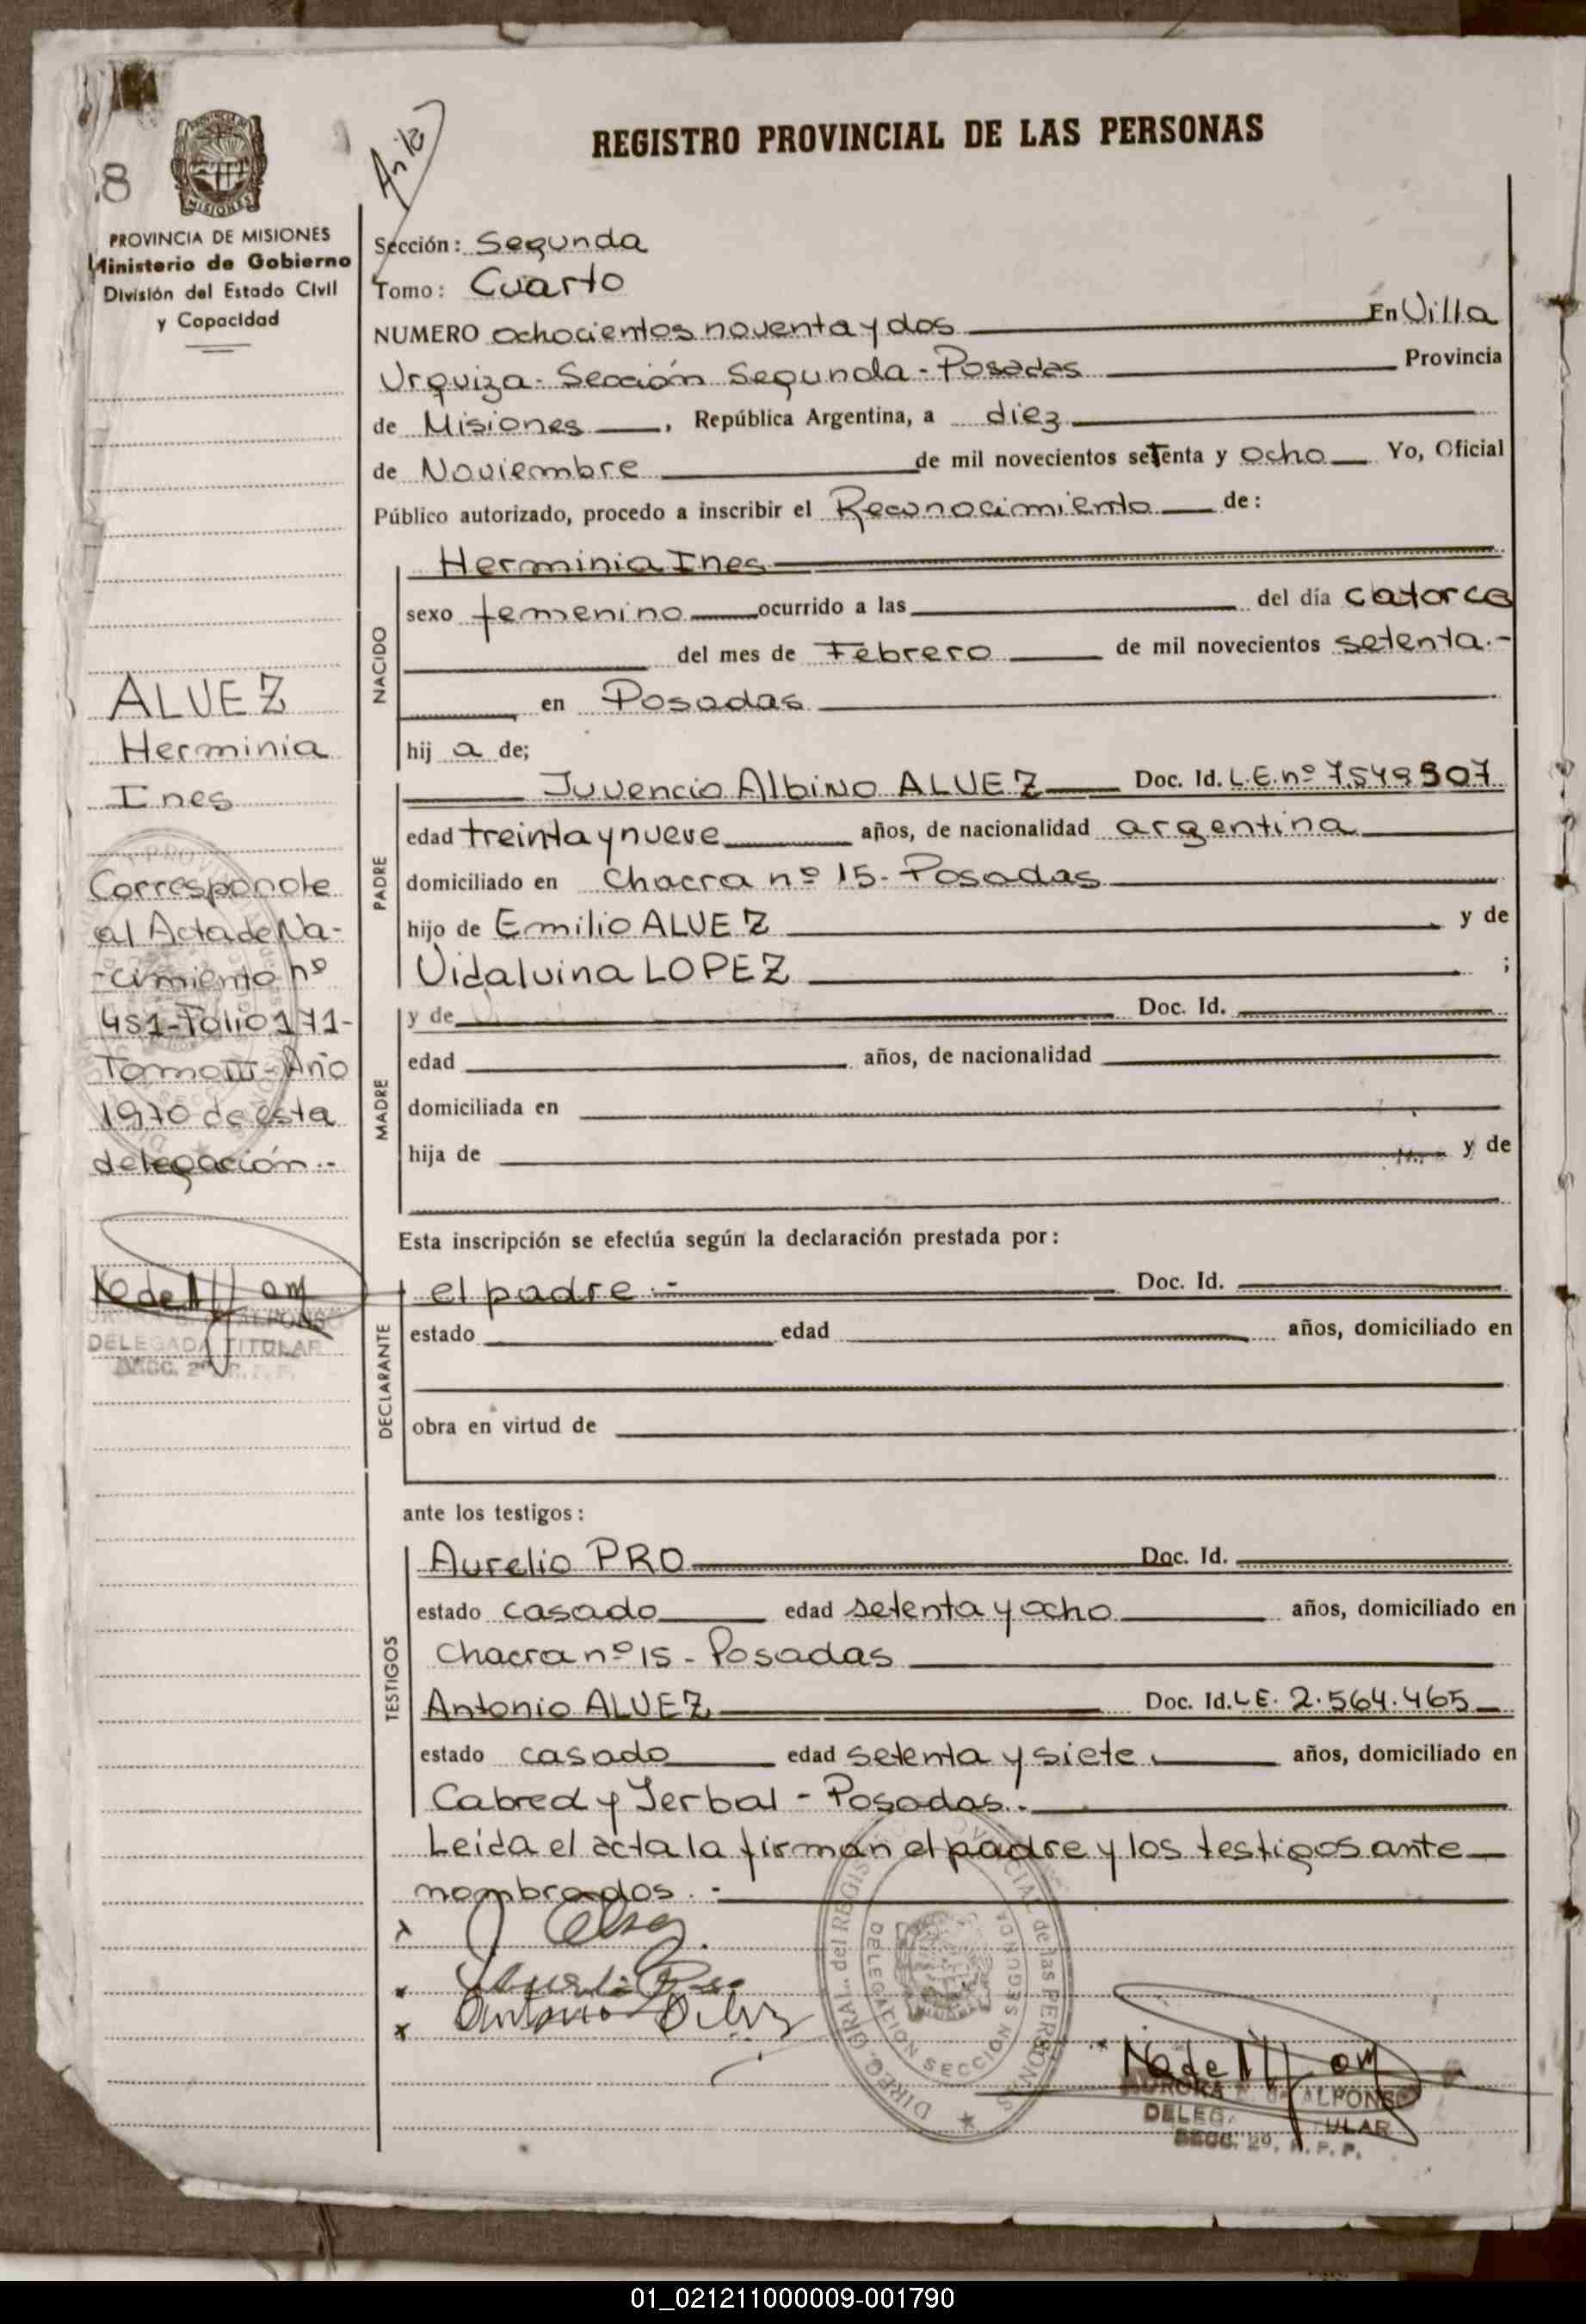 REGISTRO PROVINCIAL DE LAS PERSONAS
8
MISIONES
PROVINCIA DE MISIONES
Ministerio de Gobierno
División del Estado Civil
y Capacidad
Sección: Segunda
Tomo: Cuarto
NUMERO ochocientos noventa y dos En Villa
Urquiza - Sección Segunda - Posadas Provincia
de Misiones, República Argentina, a diez
de Noviembre de mil novecientos setenta y ocho Yo, Oficial
Público autorizado, procedo a inscribir el Reconocimiento de:
Herminia Ines
NACIDO
sexo femenino ocurrido a las del día catorce
del mes de Febrero de mil novecientos setenta.-
en Posadas
hij a de;
ALVEZ
Herminia
Ines
Corresponde
al Acta de Na-
-cimiento nº
451-Folio 171-
Tomo III-Año
1970 de esta
delegación.-
ALFONSO
DELEGADA TITULAR
SECC. 2º
PADRE
Juvencio Albino ALVEZ Doc. Id. L.E. nº 7.549907
edad treinta y nueve años, de nacionalidad argentina
domiciliado en Chacra nº 15 - Posadas
hijo de Emilio ALVEZ y de
Vidalvina LOPEZ ;
MADRE
y de Doc. Id.
edad años, de nacionalidad
domiciliada en
hija de y de
Esta inscripción se efectúa según la declaración prestada por:
DECLARANTE
el padre.- Doc. Id.
estado edad años, domiciliado en
obra en virtud de
ante los testigos:
TESTIGOS
Aurelio PRO Doc. Id.
estado casado edad setenta y ocho años, domiciliado en
Chacra nº 15 - Posadas
Antonio ALVEZ Doc. Id. L.E. 2.564.465
estado casado edad setenta y siete años, domiciliado en
Cabred y Yerbal - Posadas.-
Leída el acta la firman el padre y los testigos ante
nombrados.-
x
x
x Antonio
DIREC. GRAL. del REGISTRO PROVINCIAL de las PERSONAS
DELEGACION SECCION SEGUNDA
AURORA N. de ALFONSO
DELEG. TULAR
SECC. 2º, R. P. P.
01_021211000009-001790